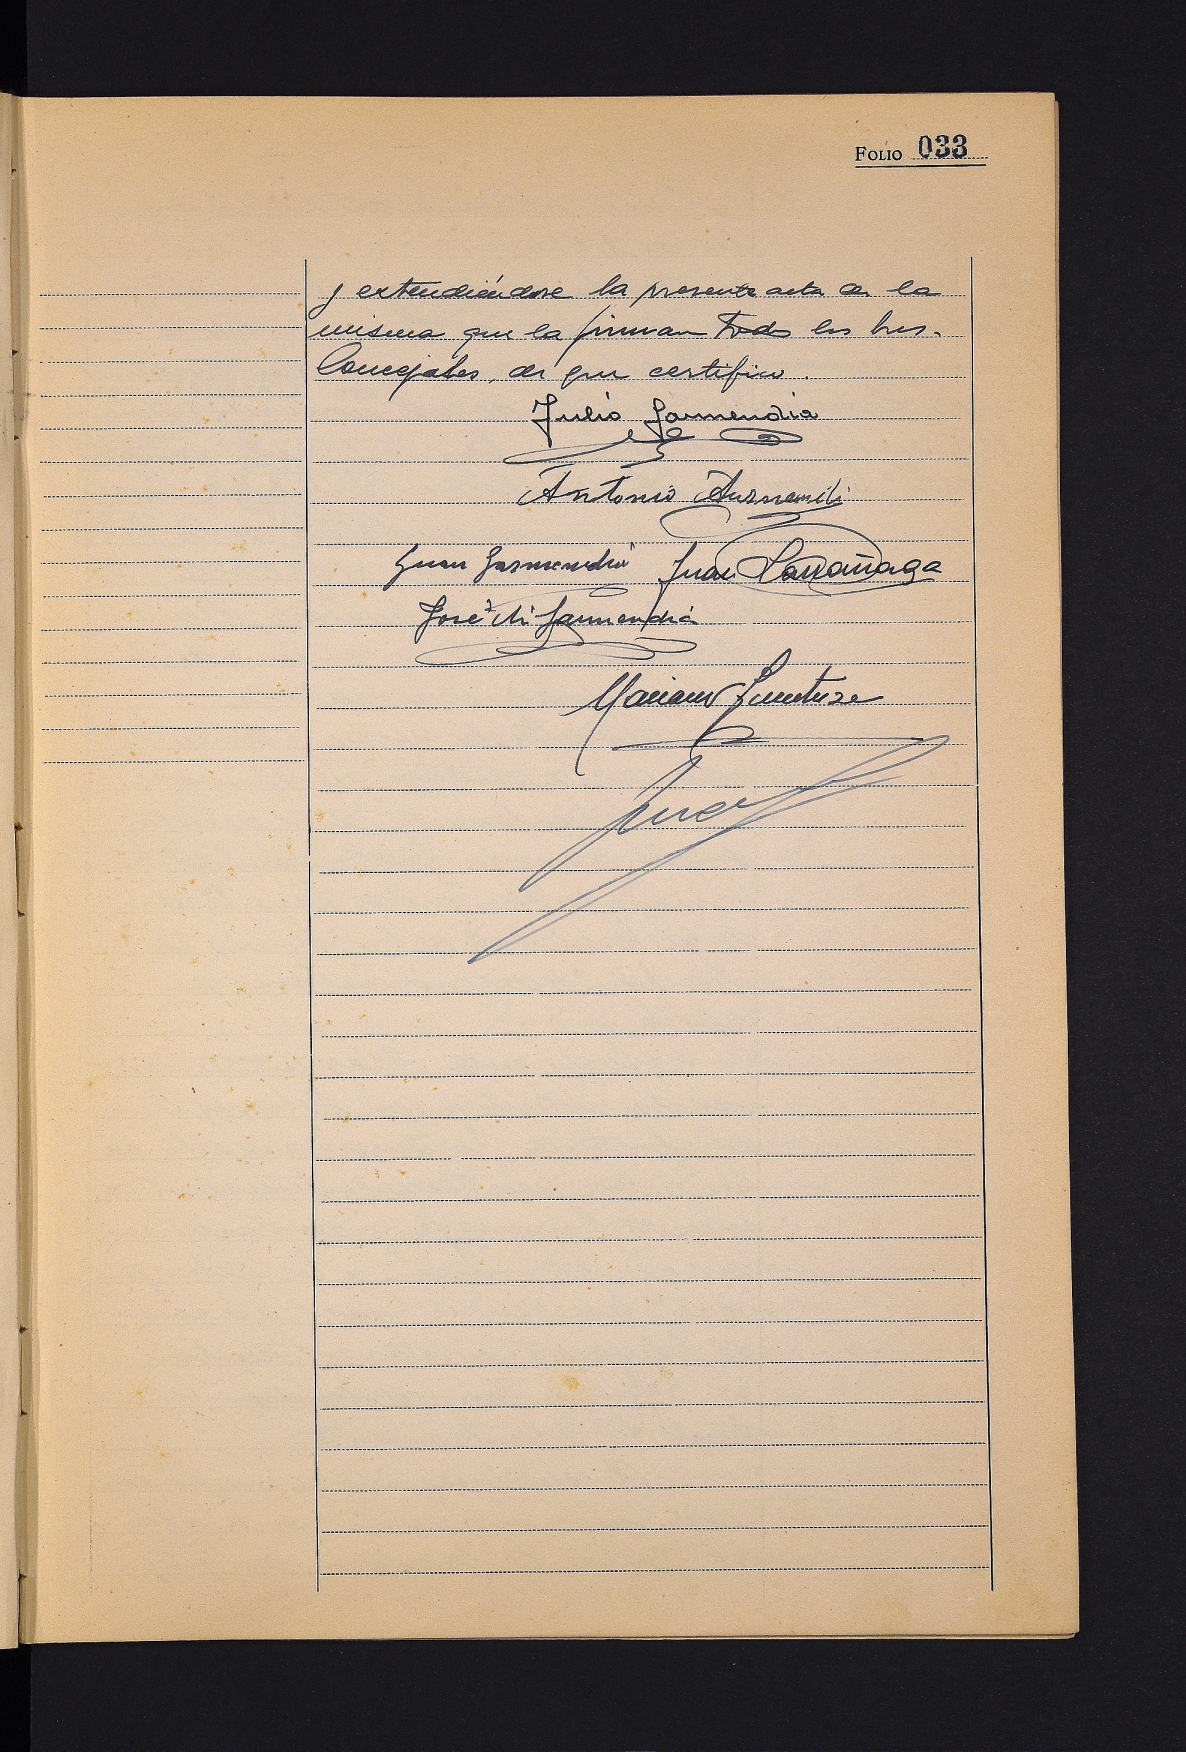 Folio 033
y extendiéndose la presente acta de la
misma que la firman todos los Sres.
Concejales, de que certifico.
Julio Garmendia
Antonio
Juan Garmendia Juan Larrañaga
José Mi Garmendia
Mariano